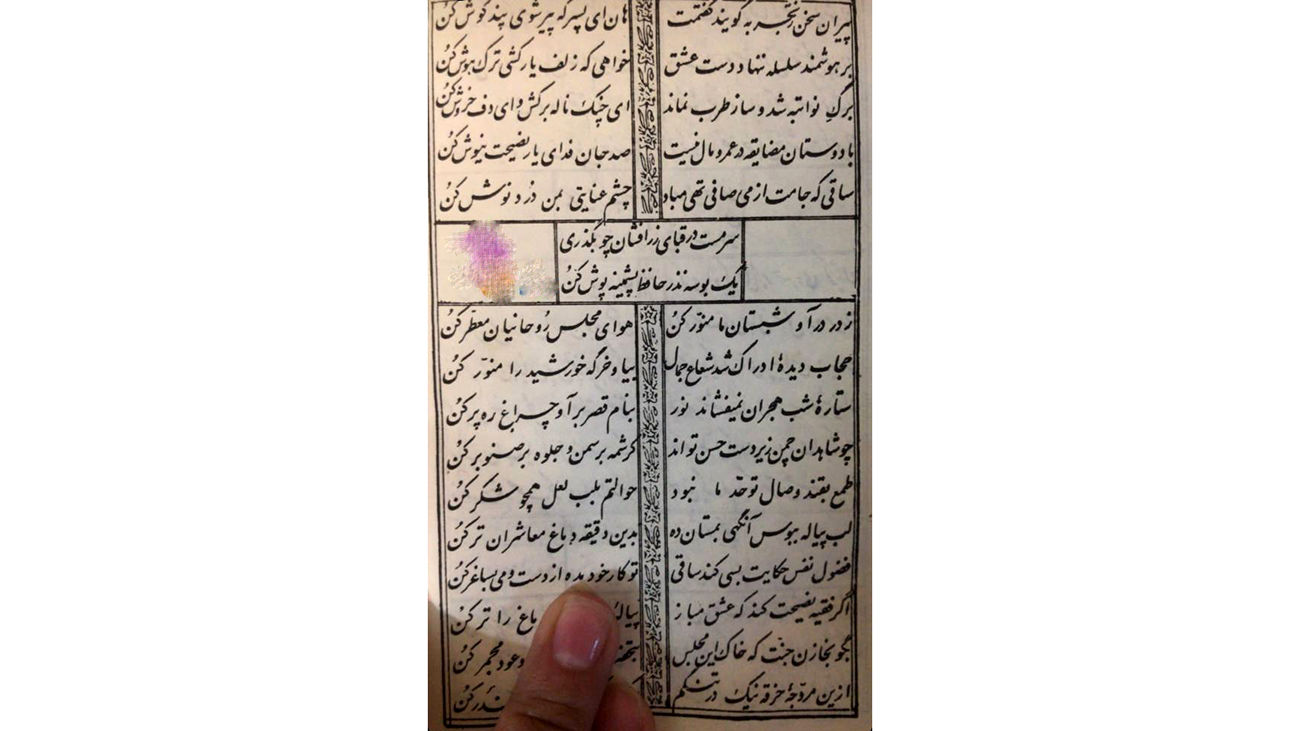 پیران سخن ز تجربه گویند گفتمت هان ای پسر که پیر شوی پند گوش کن
بر هوشمند سلسله ننهاد دست عشق خواهی که زلف یار کشی ترک هوش کن
برگ نوا تبه شد و ساز طرب نماند ای چنگ ناله برکش و ای دف خروش کن
با دوستان مضایقه در عمر و مال نیست صد جان فدای یار نصیحت نیوش کن
ساقی که جامت از می صافی تهی مباد چشم عنایتی بمن دُرد نوش کن
سرمست در قبای زرافشان چو بگذری
یک بوسه نذر حافظ پشمینه پوش کن
ز در درآ و شبستان ما منوّر کن هوای مجلس رُوحانیان معطّر کن
حجاب دیدهٔ ادراک شد شعاع جمال بیا و خرگه خورشید را منوّر کن
ستارهٔ شب هجران نمیفشاند نور ببام قصر برآ و چراغ ره بر کن
چو شاهدان چمن زیر دست حسن تو اند کرشمه بر سمن و جلوه بر صنوبر کن
طمع بقند وصال تو حدّ ما نبود حوالتم بلب لعل همچو شکر کن
لب پیاله ببوس آنگهی بمستان ده بدین دقیقه دماغ معاشران تر کن
فضول نفس حکایت بسی کند ساقی تو کار خود مده از دست و می بساغر کن
اگر فقیه نصیحت کند که عشق مباز پیاله را تر کن
بگو بخازن جنّت که خاک این مجلس و عود مجمر کن
ازین مزوّجهٔ خرقه نیک در تنگم کن